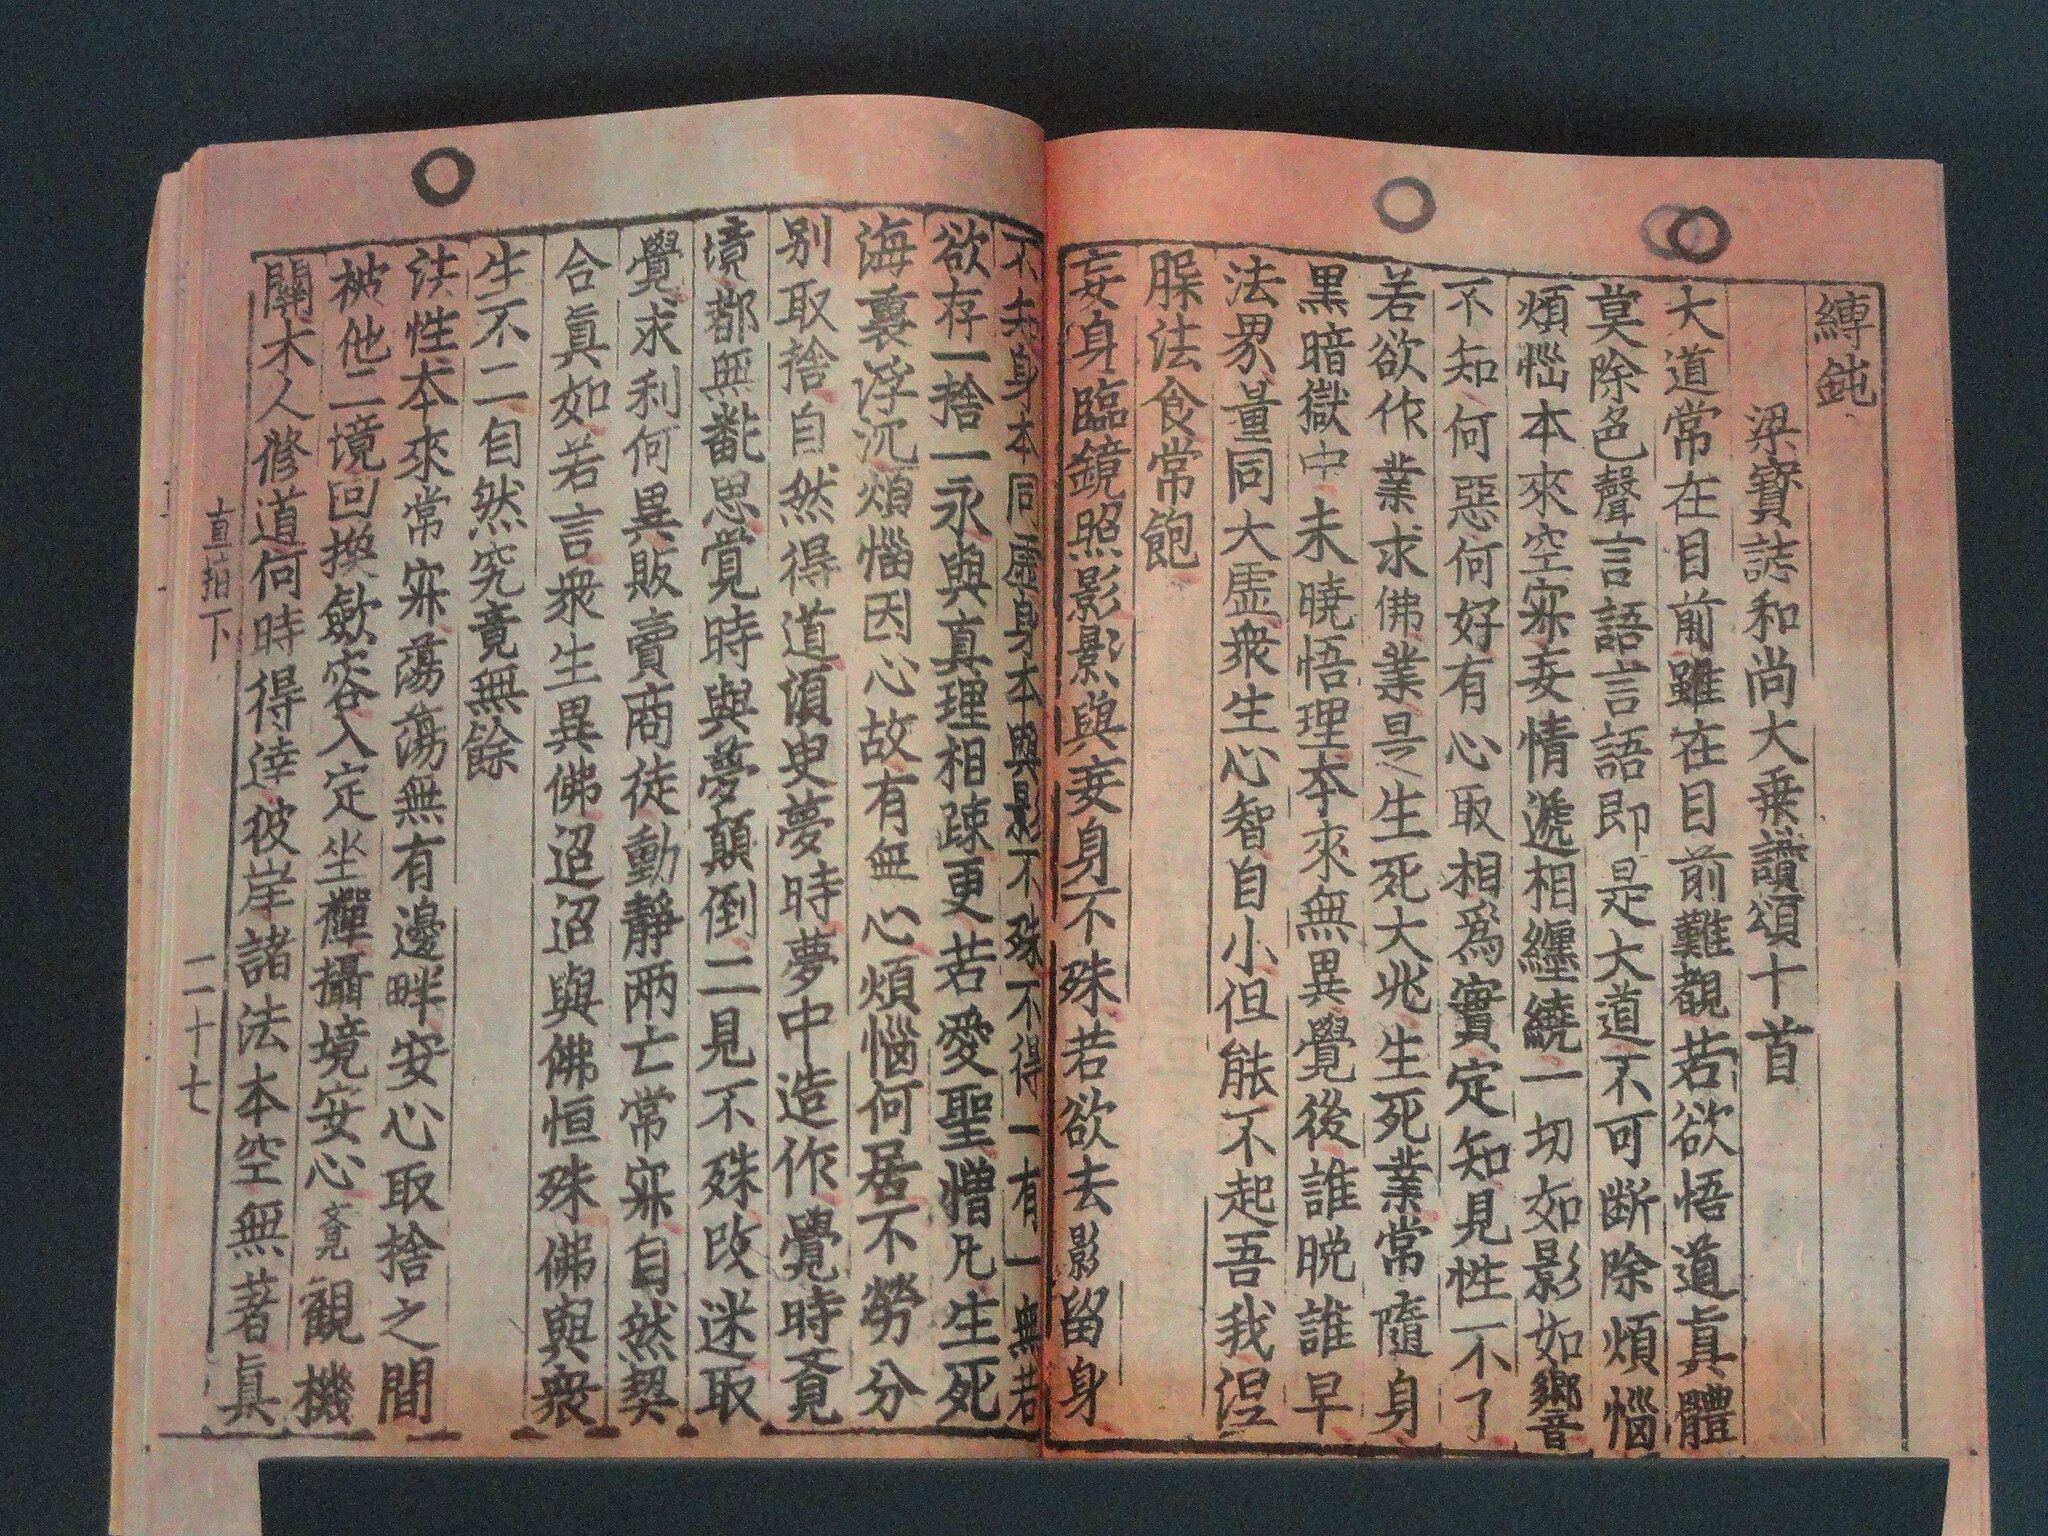 縛鈍
梁寶誌和尚大乗讃頌十首
大道常在目前雖在目前難覩若欲悟道眞體
莫除色聲言語言語即是大道不可断除煩惱
煩惱本來空㝎妄情遞相纒繞一切如影如響
不知何惡何好有心取相爲實定知見性不了
若欲作業求佛業是生死大兆生死業常隨身
黒暗獄中未曉悟理本來無異覺後誰晩誰早
法界量同大虚衆生心智自小但能不起吾我涅
法食常飽
妄身臨鏡照影影與妄身不殊若欲去影留身
不知身本同虚身本與影不殊不得一有一無若
欲存一捨一永與真理相踈更若愛聖憎凡生死
海裏浮沉煩惱因心故有無心煩惱何居不勞分
别取捨自然得道湏臾夢時夢中造作覺時
境都無飜思覺時與夢顛倒二見不殊改迷取
覺求利何異販賣商徒動靜兩亡常寂自然契
合眞如若言衆生異佛迢迢與佛恒殊佛與衆
生不二自然究竟無餘
法性本來常寂蕩蕩無有邊畔安心取捨之間
被他二境回換斂容入定坐禪攝境安心覔觀機
關木人修道何時得達彼岸諸法本空無著眞
直指下 二十七